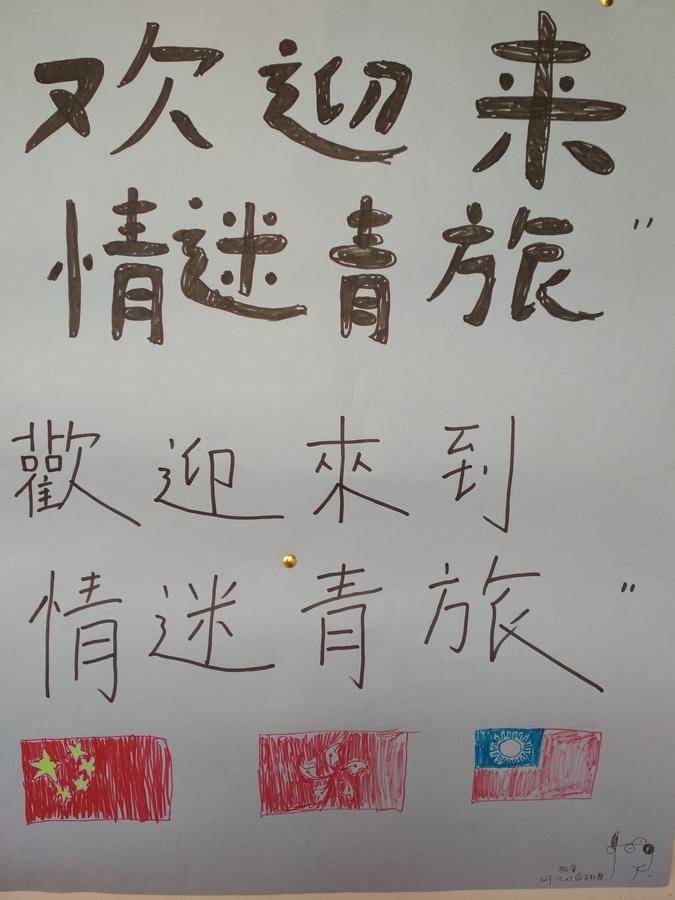 欢迎来
情迷青旅"
歡迎來到
情迷青旅"